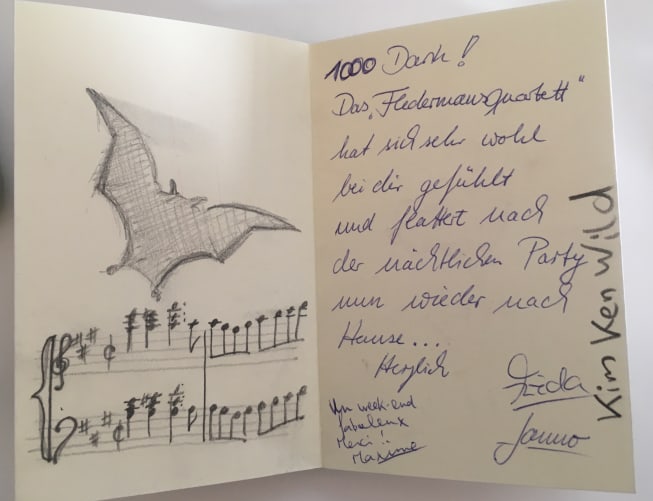 1000 Dank!
Das „Fledermausquartett“
hat sich sehr wohl
bei dir gefühlt
und flattert nach
der nächtlichen Party
nun wieder nach
Hause...
Herzlich
Frieda
Janno
Un week-end
fabuleux
Merci!!
Maxime
Kim Ken Wild